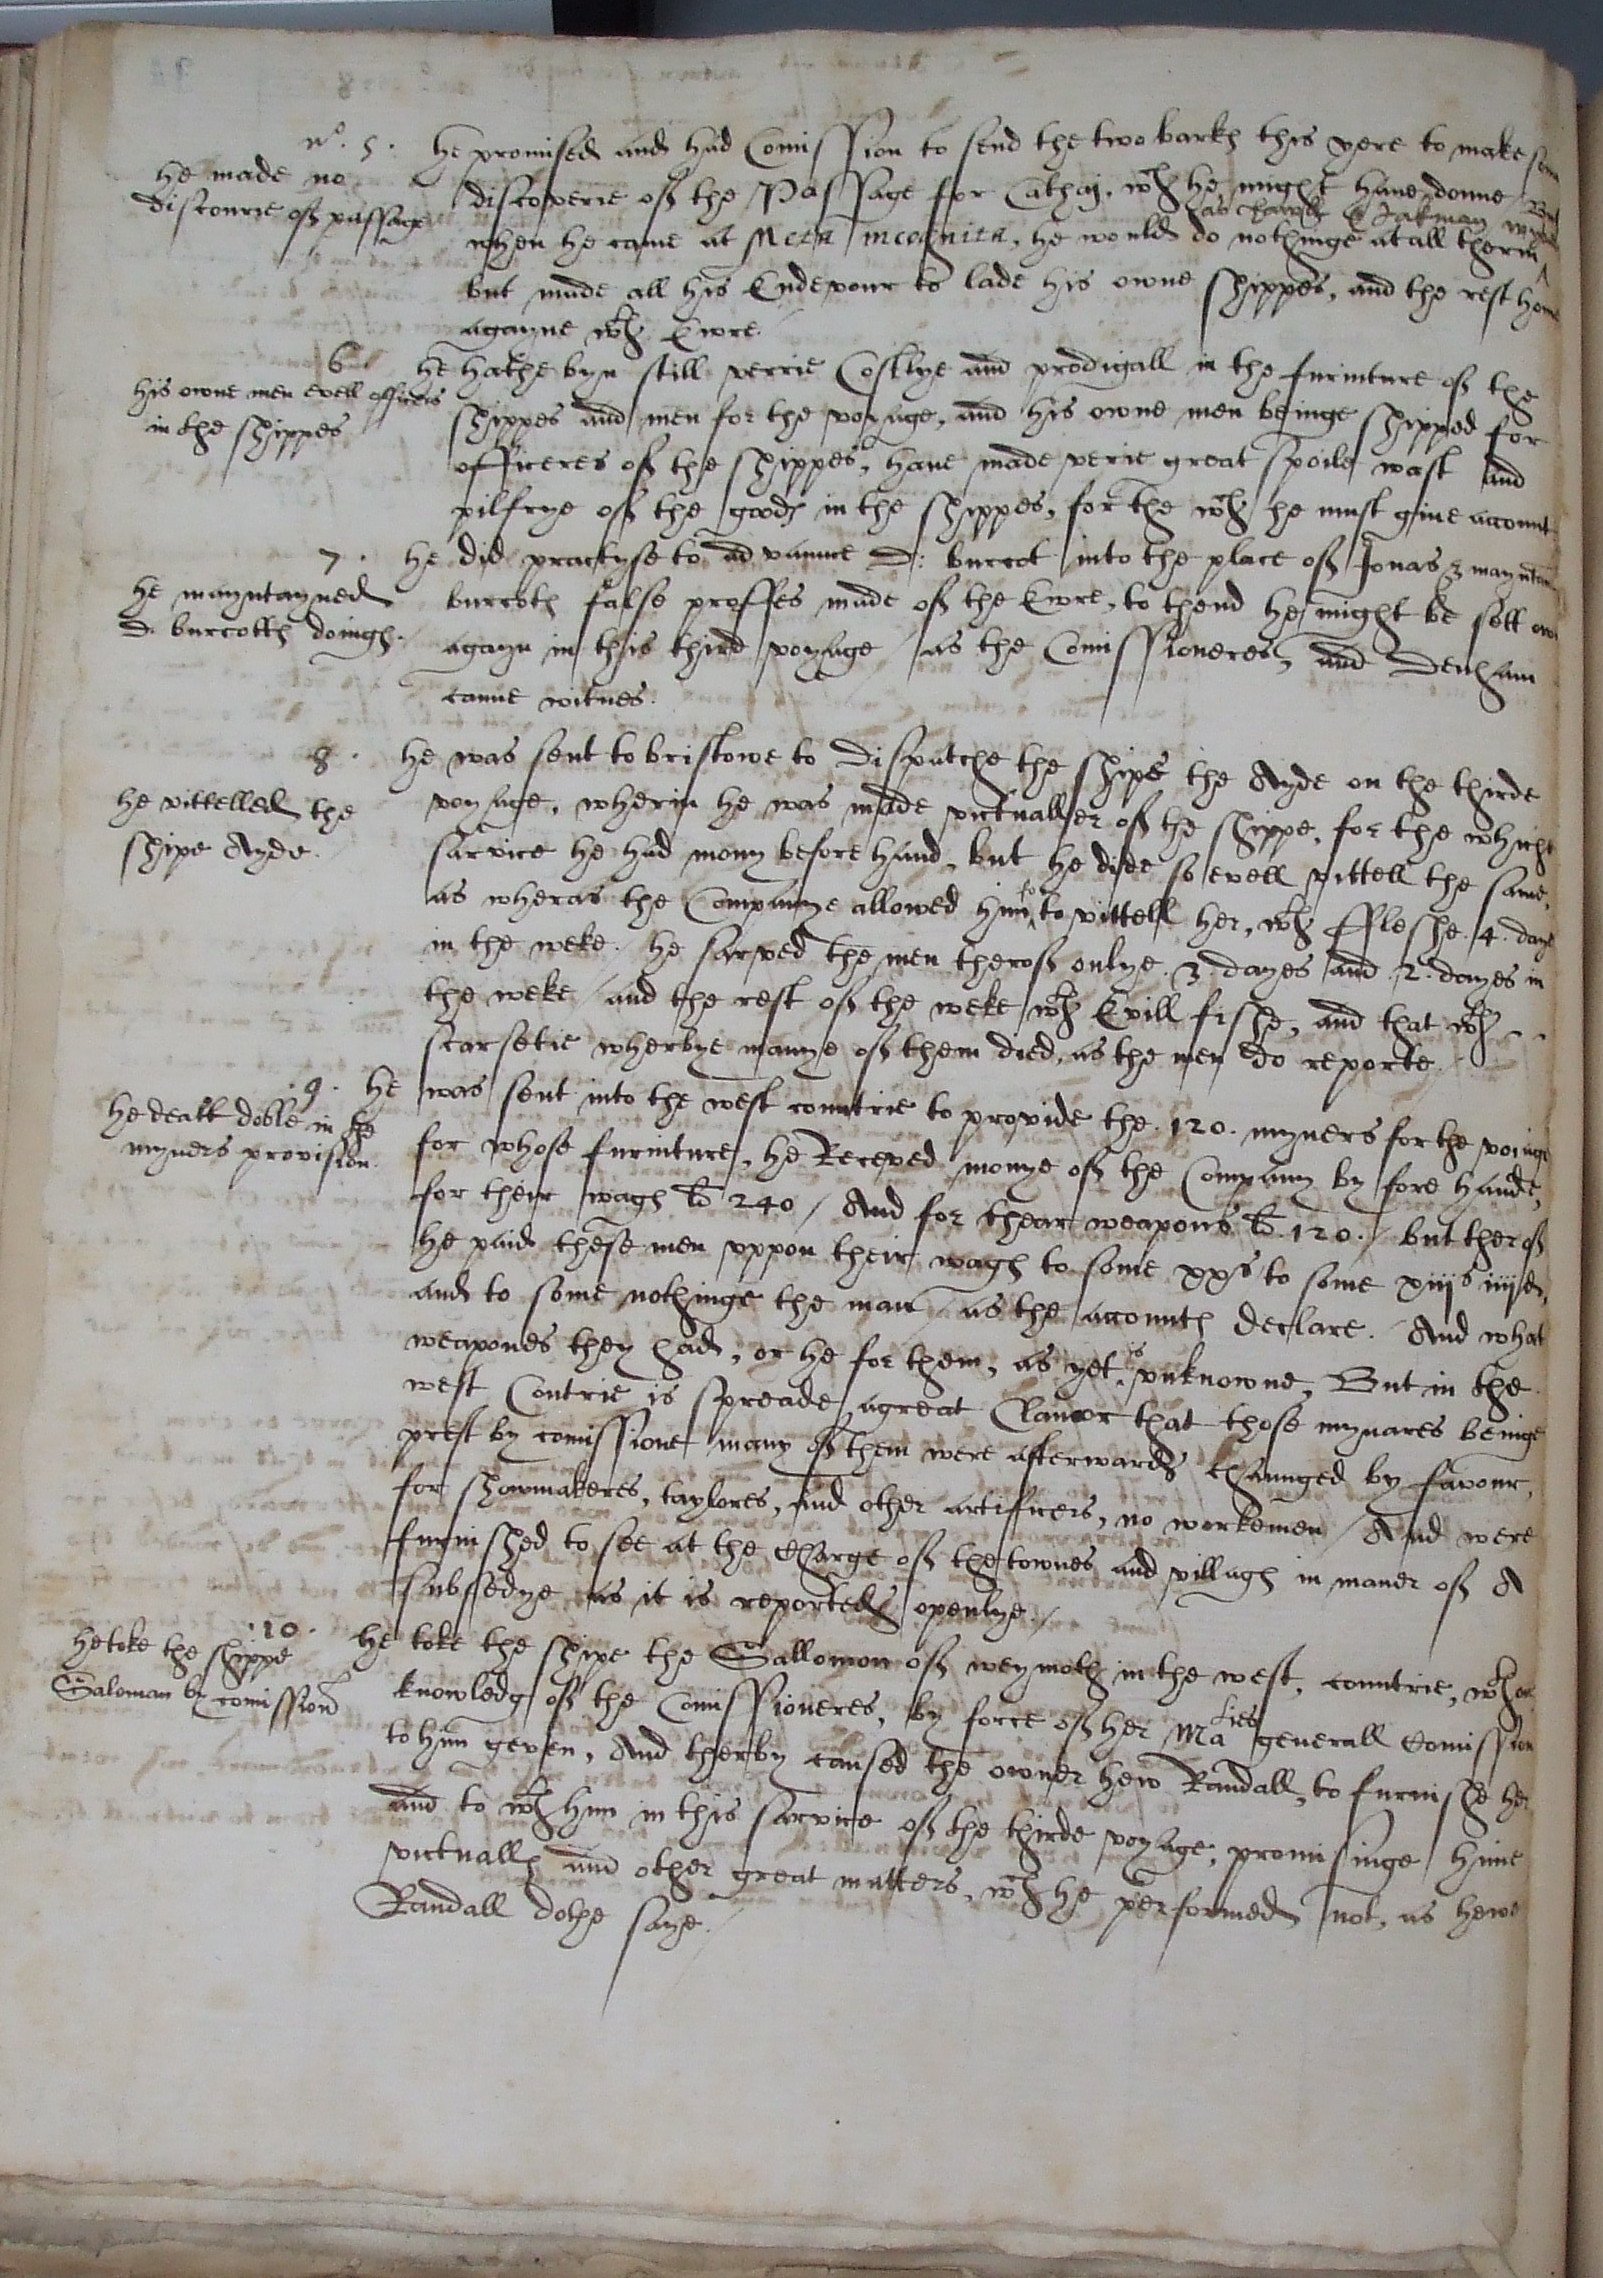 no. 5. He promised and had Comission to send the two barkes this yere to make som
He made no
discoverie of the Passage for Cathai, wch he might have donne. But
discourie of passage
as charles & Jakman wytnes
when he came at Meta incognita, he would do nothinge at all therin
but made all his Endevour to lade his owne shippes, and the rest home
agayne wth Ewre.
6. He hathe byn still verrie Costlye and prodigall in the furniture of the
His owne men evell officers
in the shippes
shippes and men for the voyage, and his owne men beinge shipped for
officeres of the shippes, have made verie great spoile wast and
pilfrye of the goods in the shippes, for the wch he must give account
7. He did practyse to advaunce D: burcot into the place of Jonas & mayntain
He mayntayned
burcotes false proffes made of the Ewre, to thend he might be sett on
D. burcottes doinges.
agayn in this third voyage / as the Comissioneres, and Denham
canne witnes.
8. He was sent to bristowe to dispatche the shipe the Ayde on the thirde
He vittelled the
shipe Ayde.
voyage, wherin he was made victualler of the shippe, for the which
sarvice he had mony before hand, but he dide so evell vittell the same,
as wheras the Companye allowed him to vittell her, wth fleshe .4. daye
in the weke. He sarved the men therof onlye .3. dayes and .2. dayes in
the weke / and the rest of the weke wth Evill fishe, and that wth
scarsetie wherbye manye of them died, as the men do reporte.
.9. He was sent into the west countrie to provide the .120. myners for the voiage
He dealt doble in the
myners provision.
for whose furniture, he Receved monye of the Company by fore hande,
for their wages £ 240 / And for thear weapons £.120. / but therof
he paid these men uppon their wages to some xxs to some xiijs iiijd,
and to some nothinge the man / as the accountes declare. And what
weapones they had, or he for them, as yet is unknowne, But in the
west Contrie is spreade a great Clamor that those mynares beinge
prest by comissione many of them were afterwards chaunged by favour,
for showmakeres, taylores, and other artificers, no workemen / And were
furnished to see at the charge of the townes and villages in maner of A
subsedye as it is reported openlye. /
.10. He toke the shipe the Sallomon of weymoth in the west, countrie, wthout
He toke the shippe
Saloman by comission
knowledg of the Comissioneres, by force of her Maties generall Comission
to him geven, And therby caused the owner Hew Randall, to furnishe her
and to wth him in this sarvice of the thirde voyage, promisinge hime
victualls and other great matters, wch he performed not, as Hewe
Randall dothe saye. /